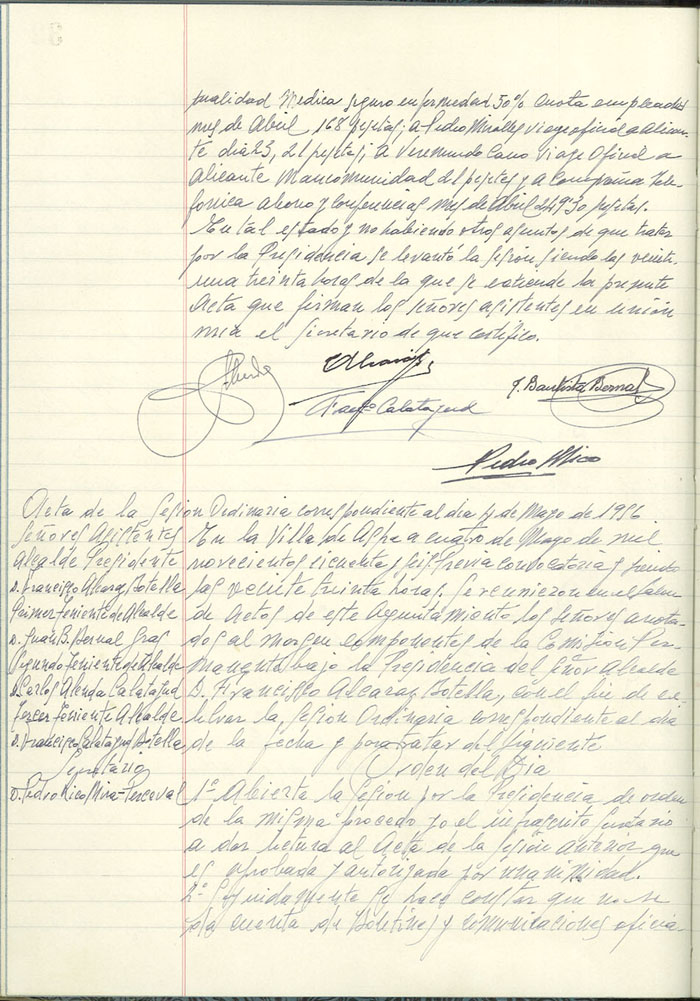 tualidad Medica seguro enfermedad 50% Cuota empleados
mes de Abril 168 pesetas; a Pedro Miralles viage oficial a Alican-
te dia 23, 21 pesetas; A Veremundo Cano Viage Oficial a
Alicante Mancomunidad 21 pesetas y a Compañia Tele-
fonica abono y conferencias mes de Abril 249'30 pesetas.
En tal estado y no habiendo otros asuntos de que tratar
por la Presidencia se levantó la sesión siendo las veinti-
una treinta horas de la que se extiende la presente
Acta que firman los señores asistentes en unión
mia el Secretario de que certifico.
Alcaraz
J. Bautista Bernal
Franco Calatayud
Pedro Mico
Acta de la Sesion Ordinaria correspondiente al dia 4 de Mayo de 1956
Señores Asistentes
Alcalde Presidente
D. Francisco Alcaraz Botella
Primer Teniente de Alcalde
D. Juan B. Bernal Gras
Segundo Teniente de Alcalde
D. Carlos Alenda Calatayud
Tercer Teniente Alcalde
D. Francisco Calatayud Botella
Secretario
D. Pedro Mico Mira-Perceval
En la Villa de Aspe a cuatro de Mayo de mil
novecientos cincuenta y seis previa convocatoria y siendo
las veinte treinta horas. Se reunieron en el Salon
de Actos de este Ayuntamiento los Señores anota-
dos al margen componentes de la Comision Per-
manente bajo la Presidencia del Señor Alcalde
D. Francisco Alcaraz Botella, con el fin de ce-
lebrar la Sesion Ordinaria correspondiente al dia
de la fecha y para tratar del siguiente
Orden del Dia
1º Abierta la Sesion por la Presidencia de orden
de la misma procedo yo el infrascrito Secretario
a dar lectura al Acta de la Sesión anterior que
es aprobada y autorizada por unanimidad.
2º Seguidamente se hace constar que no se
da cuenta de Boletines y comunicaciones oficia-